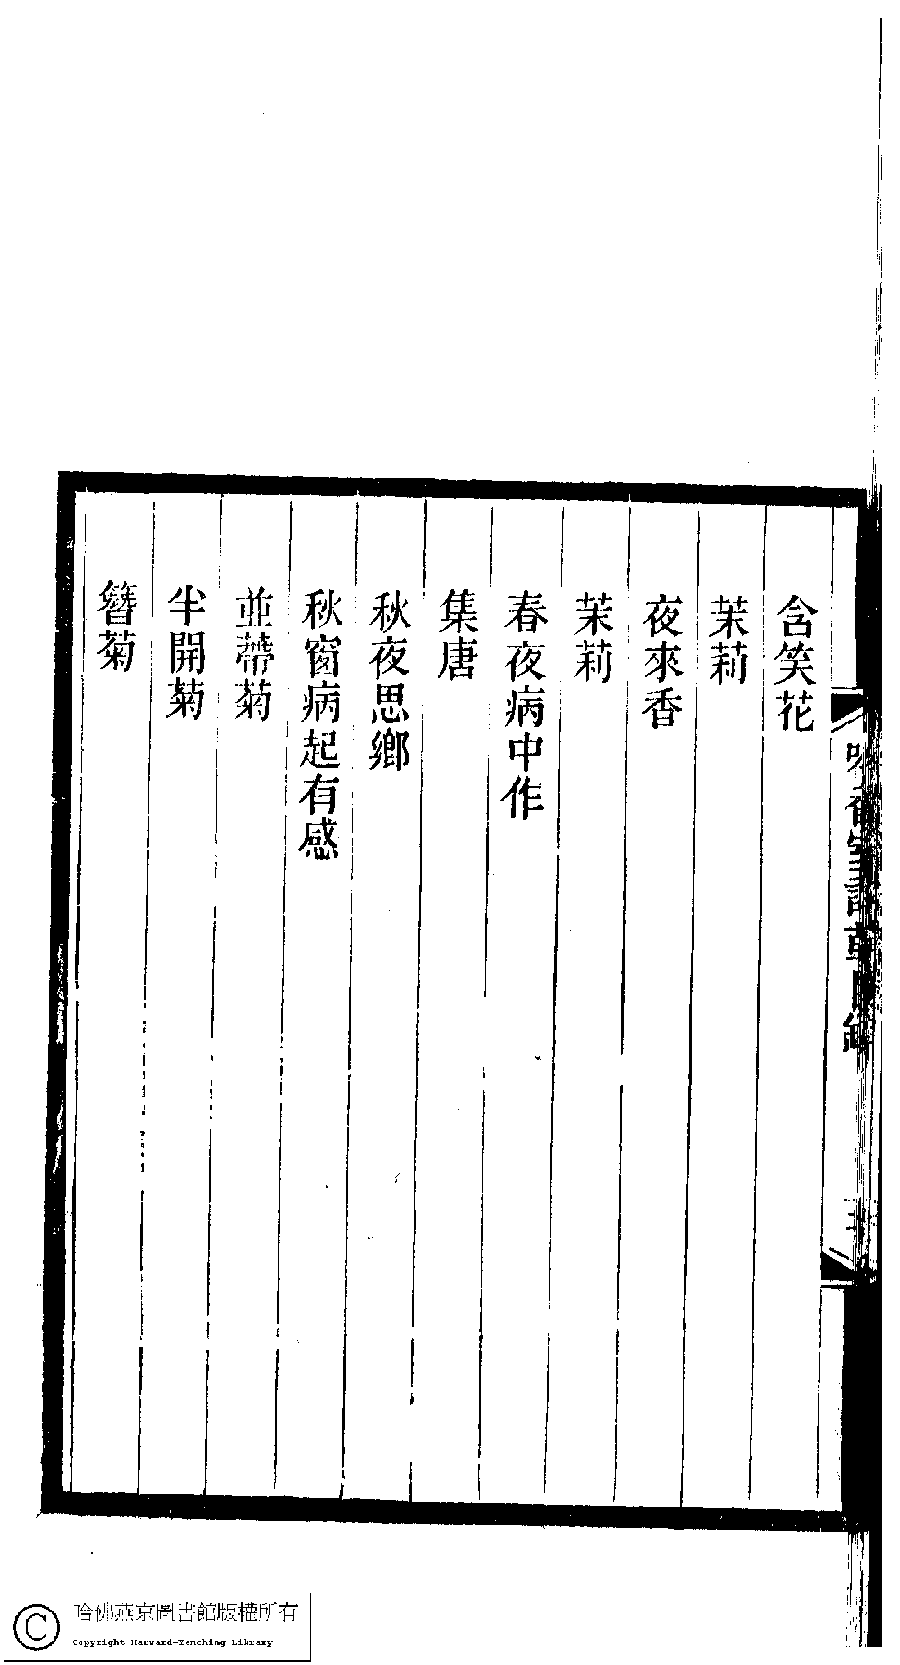 含笑花
茉莉
夜來香
茉莉
春夜病中作
集唐
秋夜思鄉
秋窗病起有感
並蔕菊
半開菊
簪菊
室詩草目錄
哈佛燕京圖書館版權所有
Copyright Harvard-Yenching Library